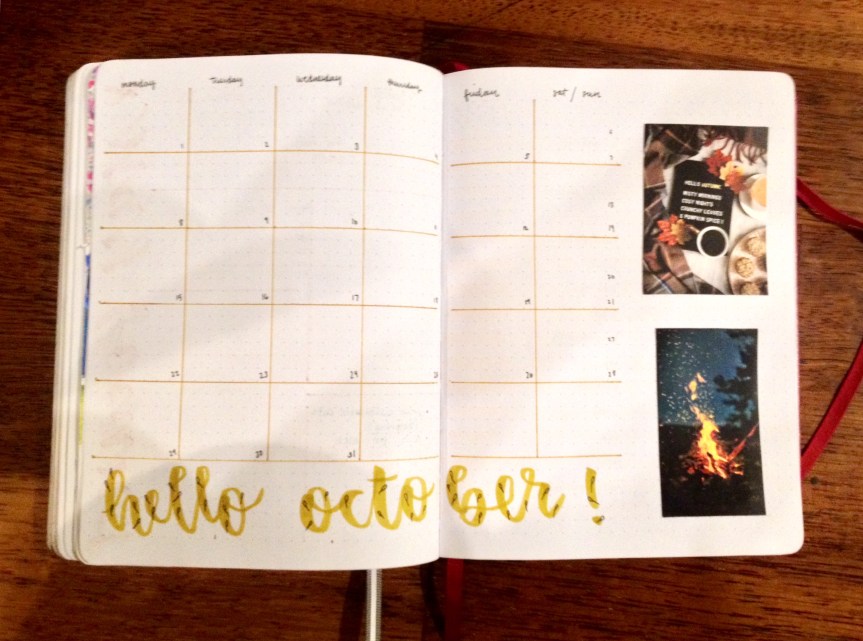 monday tuesday wednesday thursday friday sat / sun
6
1 2 3 4 5 7
13
8 9 10 11 12 14
20
15 16 17 18 19 21
27
22 23 24 25 26 28
29 30 31
HELLO AUTUMN
MISTY MORNINGS
COSY NIGHTS
CRUNCHY LEAVES
& PUMPKIN SPICE !
hello october!